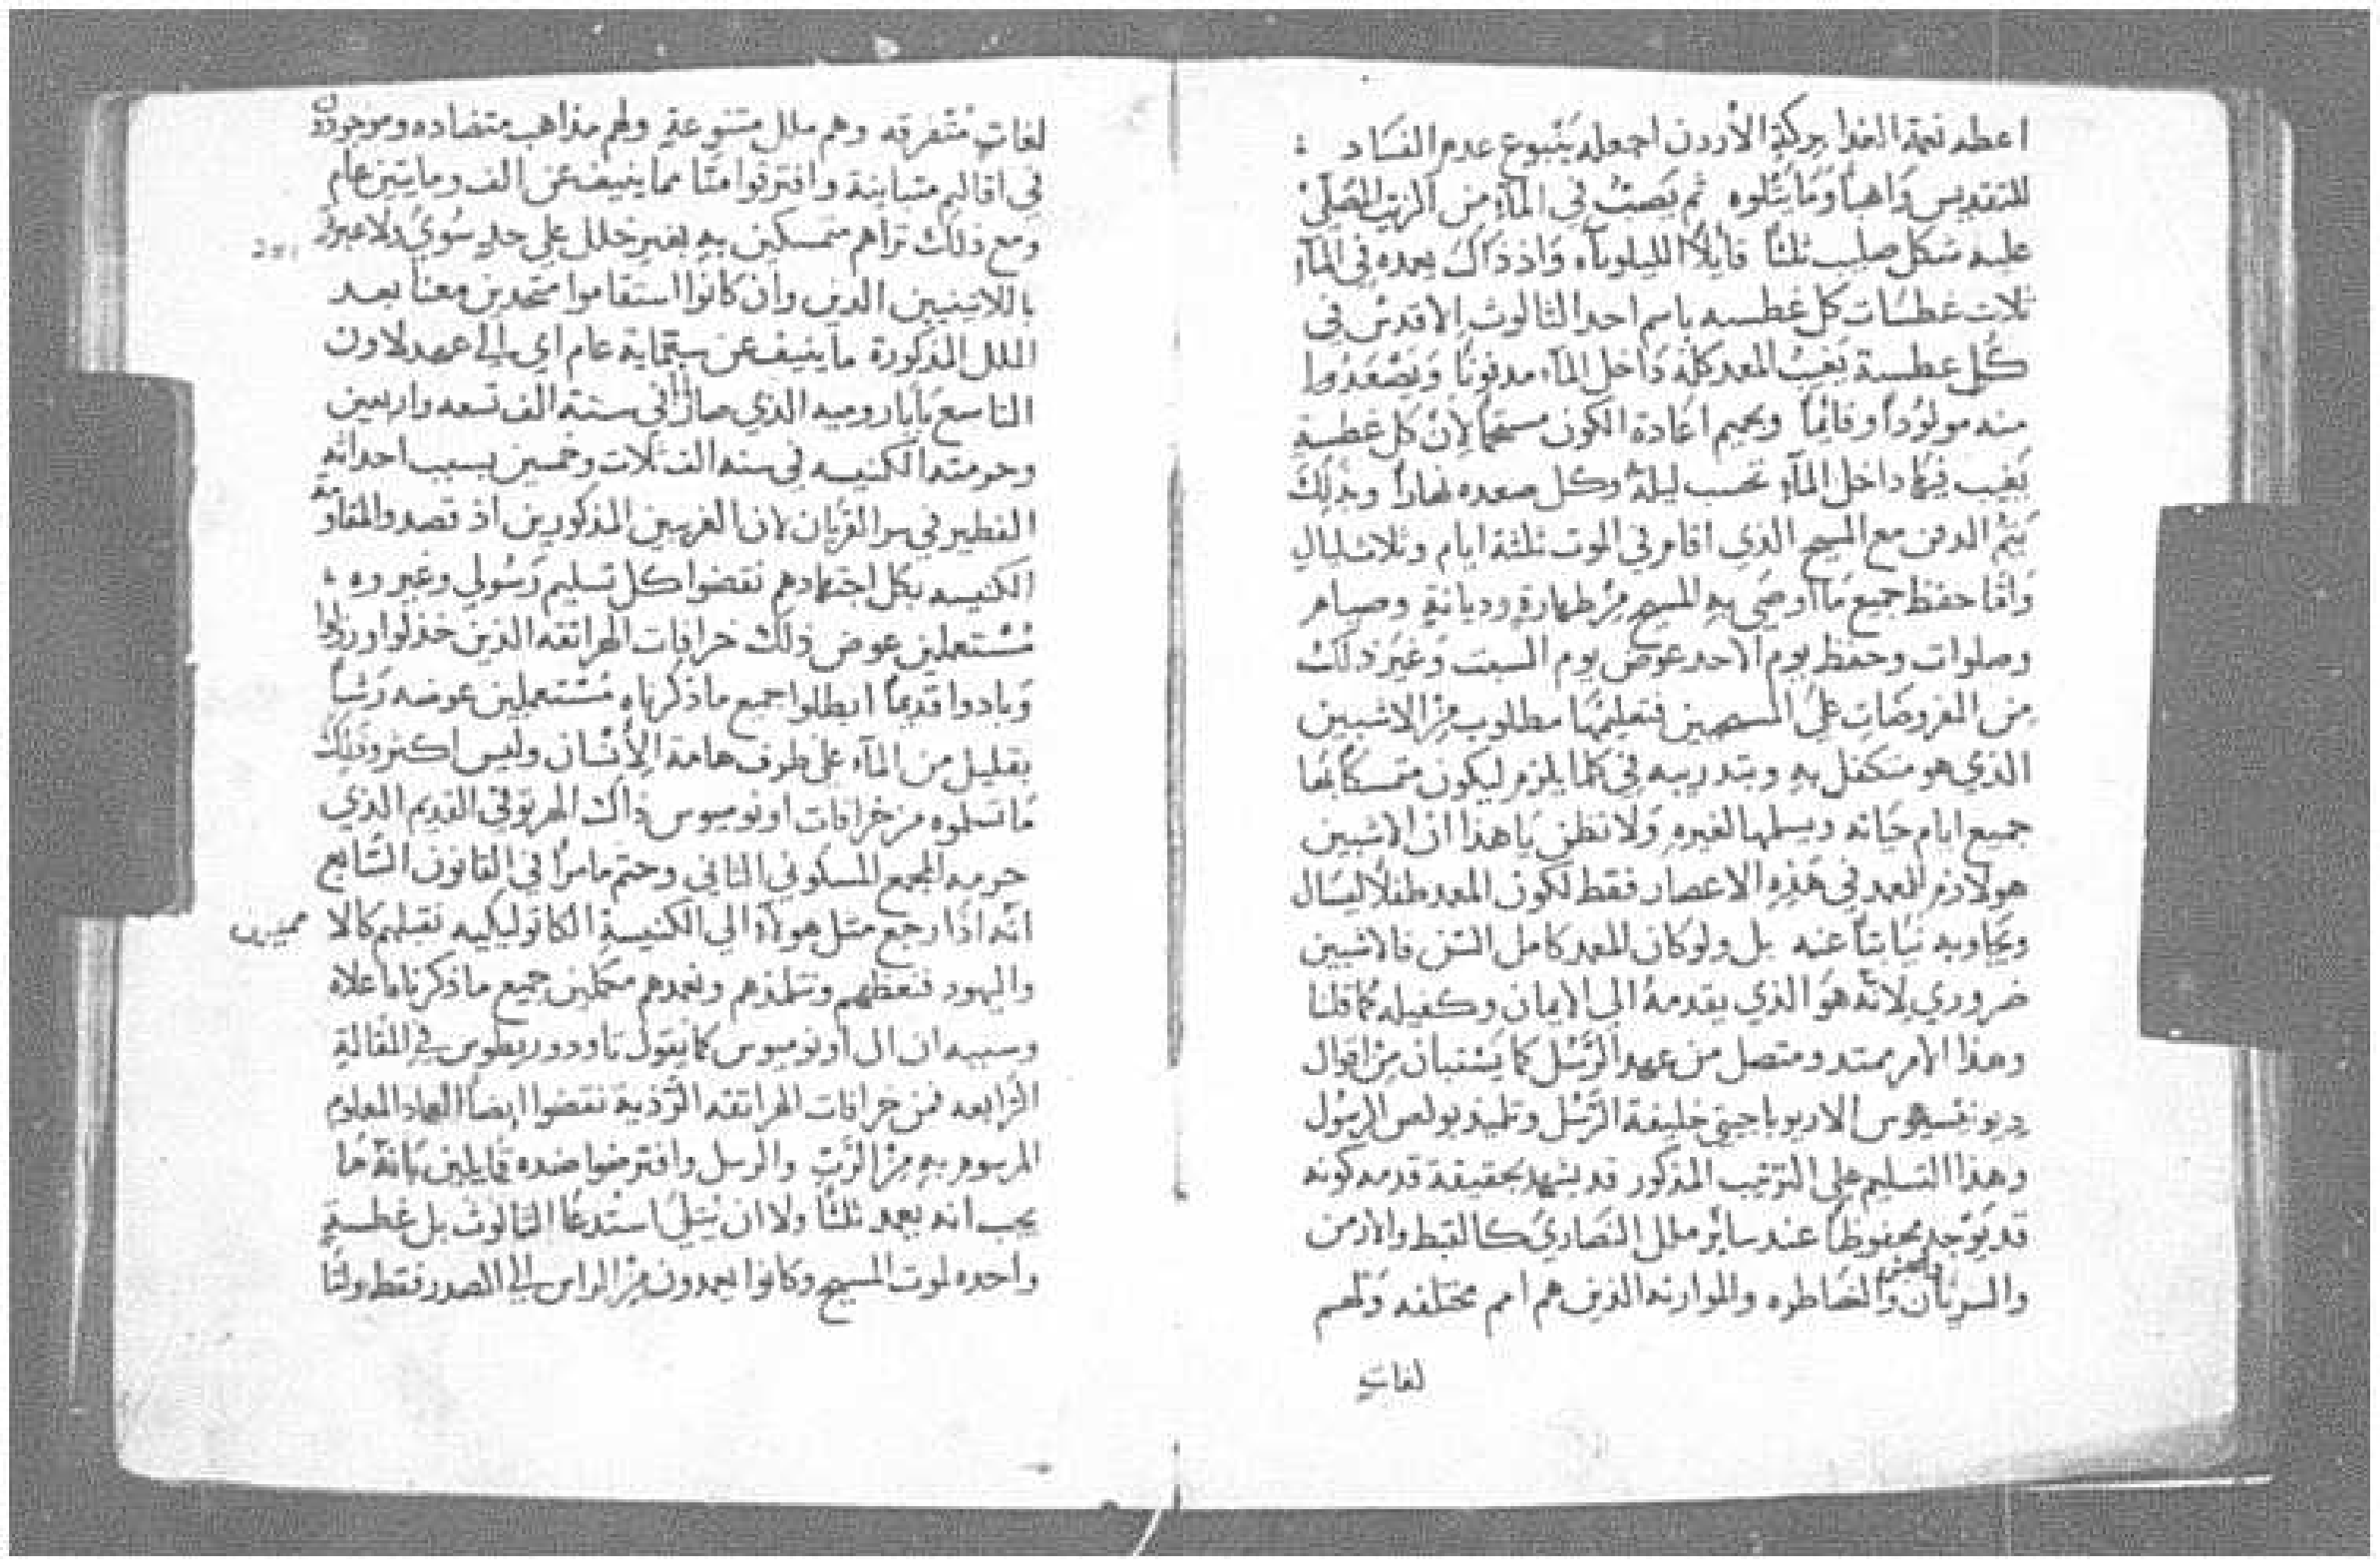 اعطه نعمة الفدا بركة الأردن اجعله يَنْبوع عدم الفسَاد :
للتقديس وَاهباً وَمَا يَتْلوه ثم يَصبّ في المآء من الزيت المصَلّى
عليه شكل صليب ثلثاً قايلاً الليلوياء وَاذ ذاكَ يعمده في المآء
ثلاث غطسَات كل غطسه باسم احد الثالوث الاقدس في
كُل غطسة يَغيبُ المعمد كله دَاخل المآء مدفونًا وَيَصْعَد
منه مولوُداً وقائِماً وبحميم اعَادة الكون مستحماً لِأنّ كل غطسةٍ
يَغيب فيها داخل المآءِ تحسب ليلةً وكل صعده نهاراً وبذلِكَ
يَتِمُ الدفن مع المسيح الذي اقام في الموت ثلثة ايام وثلاث ليالِ
وَامّا حفظ جميع مَا اوصَى بهِ المسيح مِنْ طهارةٍ وديانةٍ وصيام
وصلوات وحفظ يوم الاحد عوض يوم السبت وَغَير ذلكَ
من المفروضَاتِ عَلى المسيحيين فتعليمهَا مطلوب مِنْ الاشبين
الذي هو متكفل بهِ وبتدريبه في كلما يلزم ليكون متمسكاً بهَا
جميع ايام حيَاته ويسلمها لغيرهِ وَلا نظن يَا هذا ان الاشبين
هو لازم للعمد في هَذِهِ الاعصار فقط لكون المعمد طفلاً ليسَال
ويجاوبه نيَابتاً عنه بل ولو كان المعمد كامل السّن فالاشبين
ضروري لِانّه هوَ الذي يقدمهُ الي الايمان وكفيله كما قلنا
وهذا الامر ممتد ومتصل من عهد الرُّسُل كما يَسْتبان مِنْ اقوال
ديونيسيوس الاريوباجيتي خليفة الرُّسُل وتلميذ بولص الرسُول
وهذا التسليم على الترتيب المذكور قد يشهد بحقيقة قدمه كونه
قد يَوُجد محفوظاً عند سائر ملل النصَاريَ كالقبط والارمن
والسريَان والحبش وَالنسَاطره والموارنه الذين هم امم مختلفه وَلهم
لغاتٍ
لغاتٍ مُتْفرقه وهم ملل متنوعةٍ ولهم مذاهب متضاده وموجودون
في اقاليم متباينة وافترقوا منّا مما ينيف عن الف ومايتين عام
ومع ذلكَ تراهم متمسكين بهِ بغير خلل على حدٍ سُويً ولا عبرة
باللاتينيين الدين وان كانوا استقاموا متحدين معنا بعد
الملل المذكورة مآ ينيف عن ستماية عام اي الى عهد لاون
التاسع بَابا روميه الذي صار في سنة الف تسعه واربعين
وحرمته الكنيسه في سنه الف ثلاث وخمسين بسبب احداثه
الفطير في سر القربَان لان الغربيين المذكورين اذ قصدوا مقاومة
الكنيسه بكل اجتهادهم نقضوا كل تسليم رَسُولي وغيروه ؛
مُسْتعملين عوض ذلكَ خرافات الهراتقه الذين خذلوا ورذلوا
وَبادوا قَديماً ابطلوا جميع ما ذكرناه مُسْتعملين عوضه رَشاً
بقليل من المآء على طرف هامة الأنسَان وليس اكثر وَذَلِكَ
مَا تسلموه من خرافات اونوميوس ذاك الهرتوقي القديم الذي
حرمه المجمع المسكوني الثاني وحتم مامرًا في القانون السَّابع
انّه اذَا رجع مثل هولآءِ الي الكنيسةِ الكاتوليكيه نقبلهم كالامميين
واليهود فنعظهم ونتلمذهم ونعمدهم مكملين جميع ما ذكرناه اعلاه
وسببه ان ال اونوميوس كما يَقول تاودوريطوس في المقالةِ
الرَّابعه فمن خرافات الهراتقه الرَّذية نقضوا ايضاً العماد المعلوم
المرسوم بهِ مِنْ الرَّبّ والرسل وافترضوا ضده قَايلين بَانّهُ مَا
يجب انه يعمد ثلثاً ولا ان يتلىَ استدعَا الثالوث بل غطسةٍ
واحده لموت المسيح وكانوا يعمدون مِنْ الراس الي الصدر فقط ولمّا